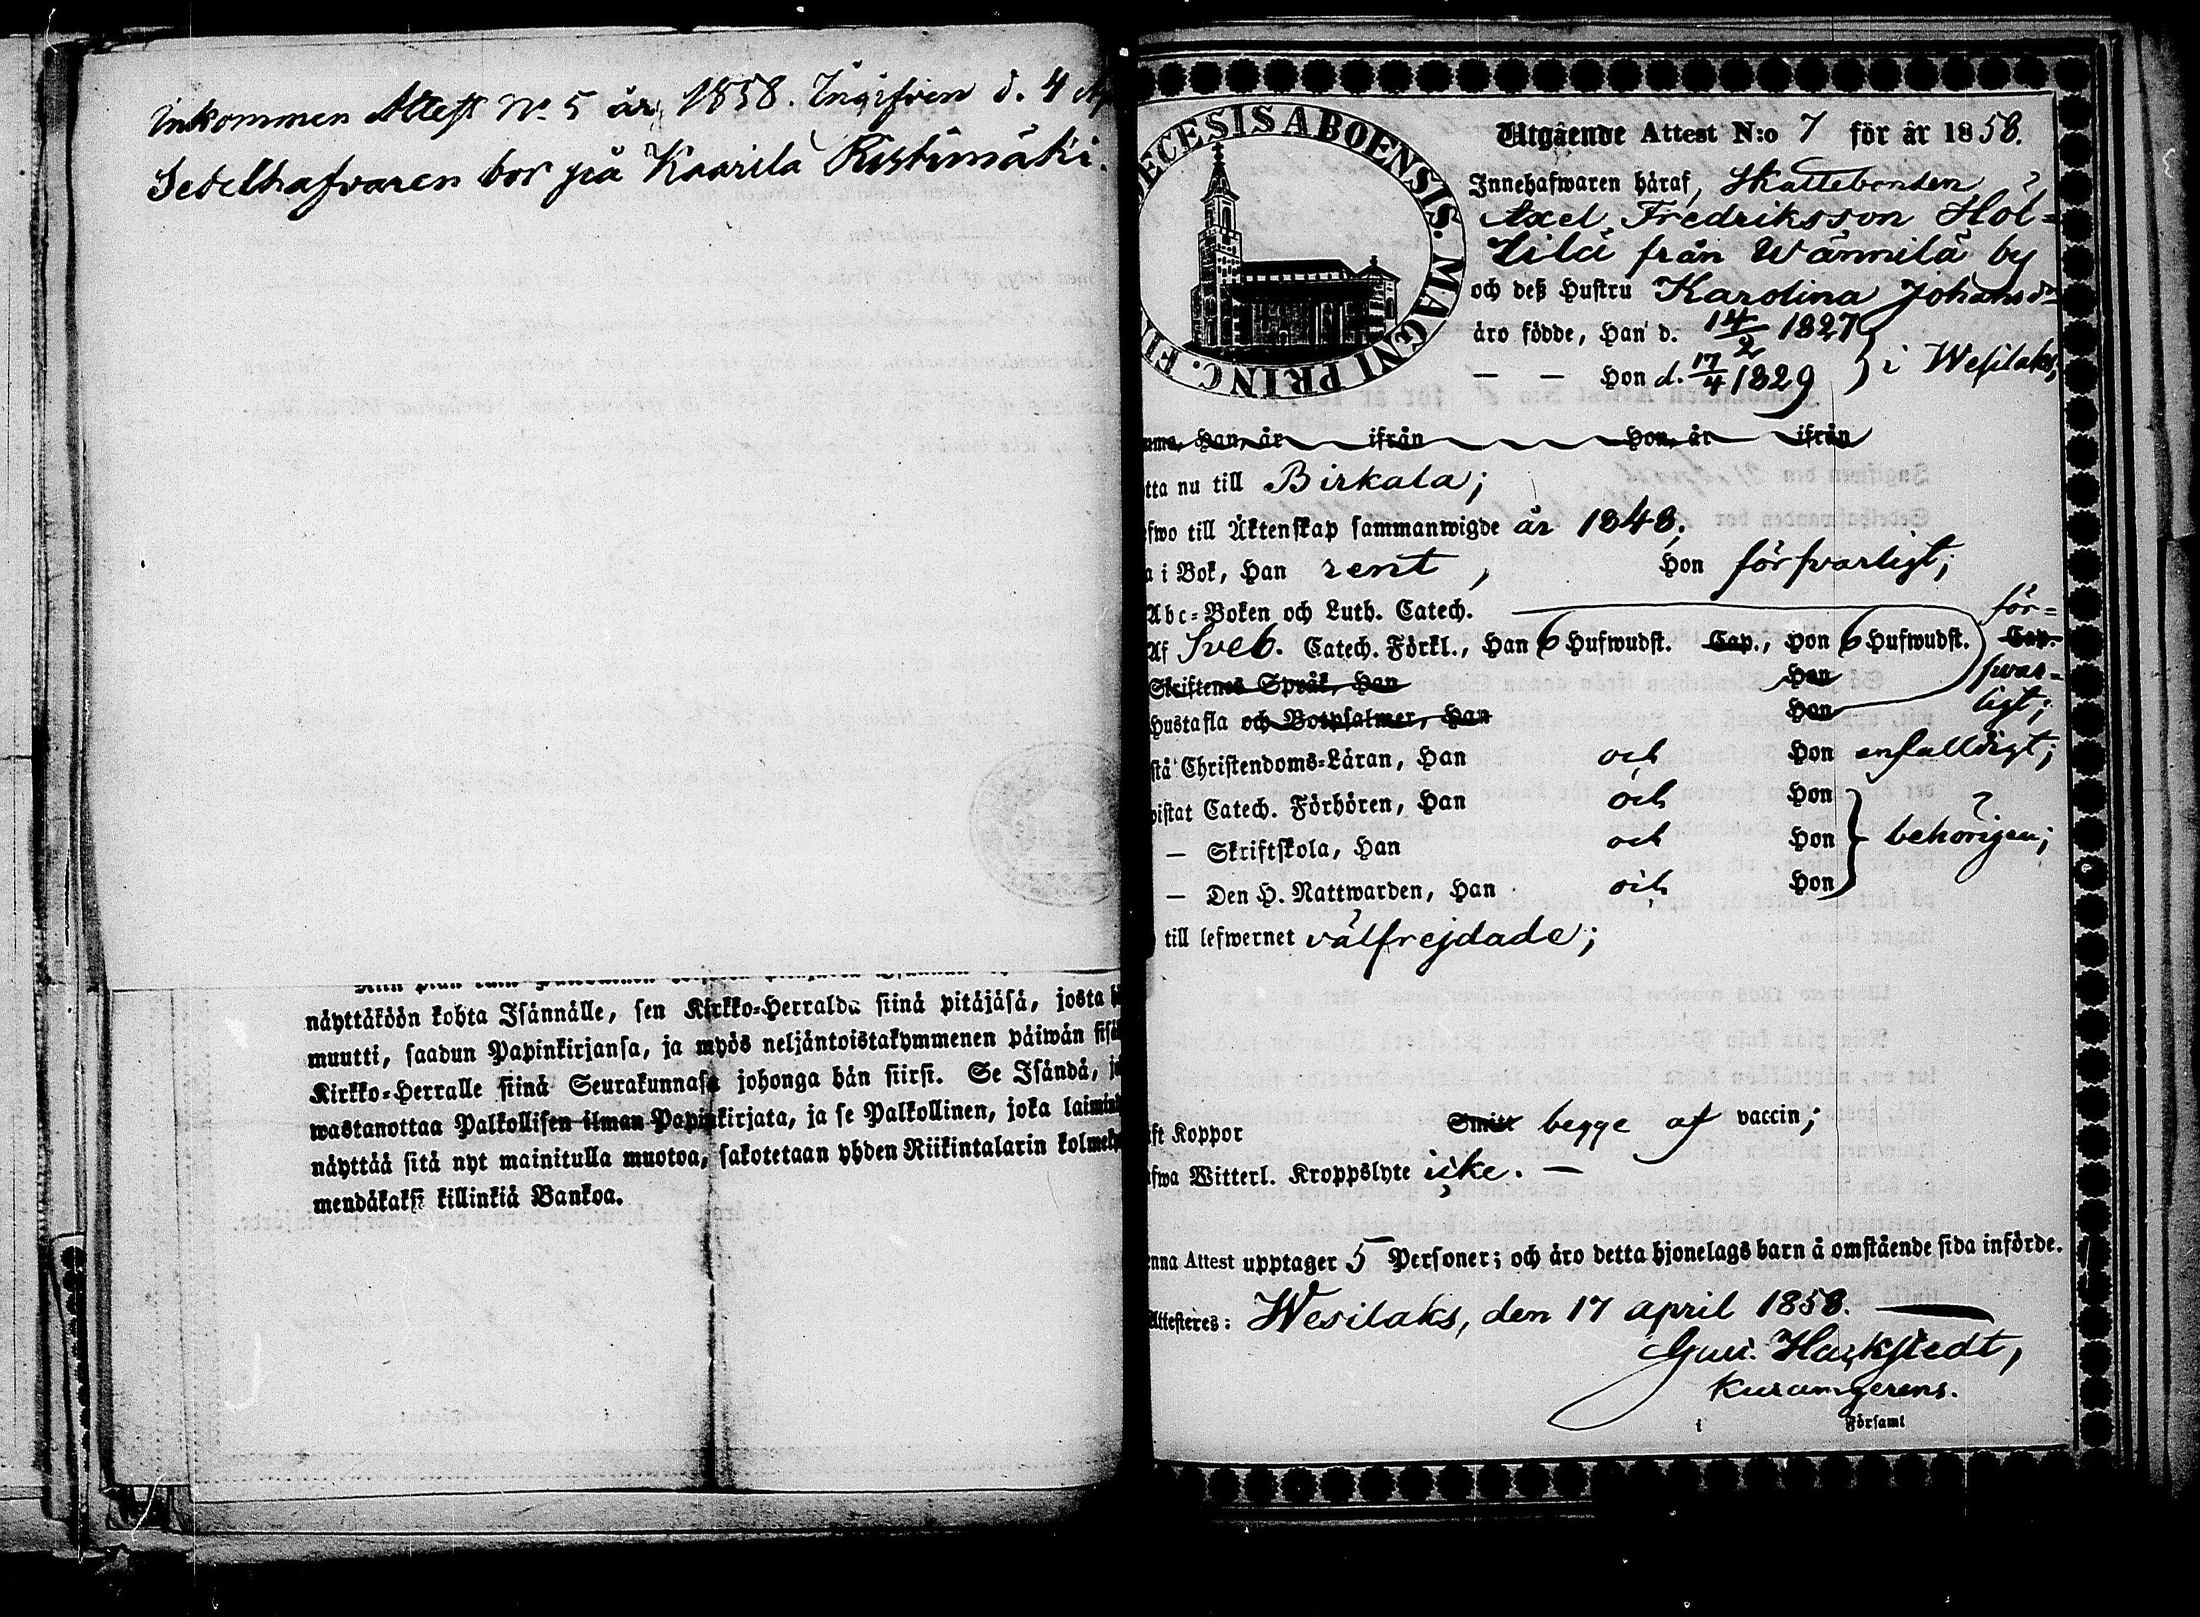 Inkommen Attest No 5 år 1858. Ingifven d. 4
Sedelhafvaren bor på Kaarila Ristimäki.
näyttäköön kohta Isännälle, sen Kirkko-Herralda siinä pitäjäsä, josta
muutti, saadun Papinkirjansa, ja myös neljäntoistakymmenen päiwän
Kirkko-Herralle siinä Seurakunnasa johonga hän siirsi. Se Isändä,
wastanottaa Palkollisen ilman Papinkirjata, ja se Palkollinen, joka
näyttää sitä nyt mainitulla muotoa, sakotetaan yhden Riikintalarin
mendäkaksi killinkiä Bankoa.
ECESIS ABOENSIS. MAGNI PRINC. FI
Utgående Attest N:o 7 för år 1858.
Innehafwaren häraf, Skattebonden
Axel Fredriksson Hol=
lilä från Wännilä by
och deß Hustru Karolina Johansdr
äro födde, Han d. 14/2 1827
— — Hon d. 17/4 1829 } i Wesilaks,
Han, är ifrån Hon, är ifrån
tta nu till Birkala;
fwo till Äktenskap sammanwigde år 1848,
a i Bok, Han rent, Hon försvarligt,
Abc-Boken och Luth. Catech. för=
Af Sveb. Catech. Förkl., Han 6 Hufwudst. Cap., Hon 6 Hufwudst. Cap.
Skriftenes Språk, Han Hon svar=
Hustafla och Botpsalmer, Han Hon ligt;
stå Christendoms-Läran, Han och Hon enfalldigt;
wistat Catech. Förhören, Han och Hon
— Skriftskola, Han och Hon behörigen;
— Den H. Nattwarden, Han och Hon
till lefwernet välfrejdade;
ft Koppor Smitt begge af vaccin;
fwa Witterl. Kroppslyte icke. —
enna Attest upptager 5 Personer; och äro detta hjonelags barn å omstående sida införde.
Attesteres: Wesilaks, den 17 april 1858.
Hackstedt,
Kuramgerens.
i Församl